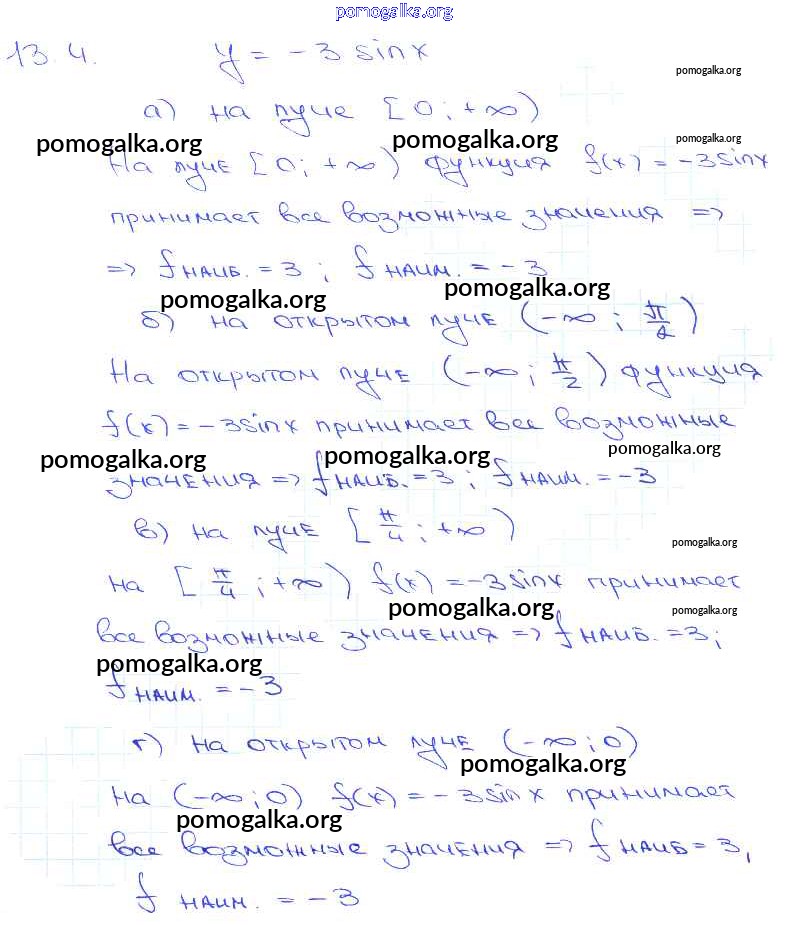 pomogalka.org
13.4. y = -3 sinx
pomogalka.org
а) на луче [0; +∞)
pomogalka.org pomogalka.org pomogalka.org
На луче [0; +∞) функция f(x) = -3sinx
принимает все возможные значения =>
=> f наиб. = 3 ; f наим. = -3
pomogalka.org pomogalka.org
б) на открытом луче (-∞; π/2)
На открытом луче (-∞; π/2) функция
f(x) = -3sinx принимает все возможные
pomogalka.org pomogalka.org pomogalka.org
значения => f наиб. = 3 ; f наим. = -3
в) на луче [π/4; +∞)
pomogalka.org
на [π/4; +∞) f(x) = -3sinx принимает
pomogalka.org pomogalka.org
все возможные значения => f наиб. = 3;
pomogalka.org
f наим. = -3
г) на открытом луче (-∞; 0)
pomogalka.org
на (-∞; 0) f(x) = -3sinx принимает
pomogalka.org
все возможные значения => f наиб = 3,
f наим. = -3